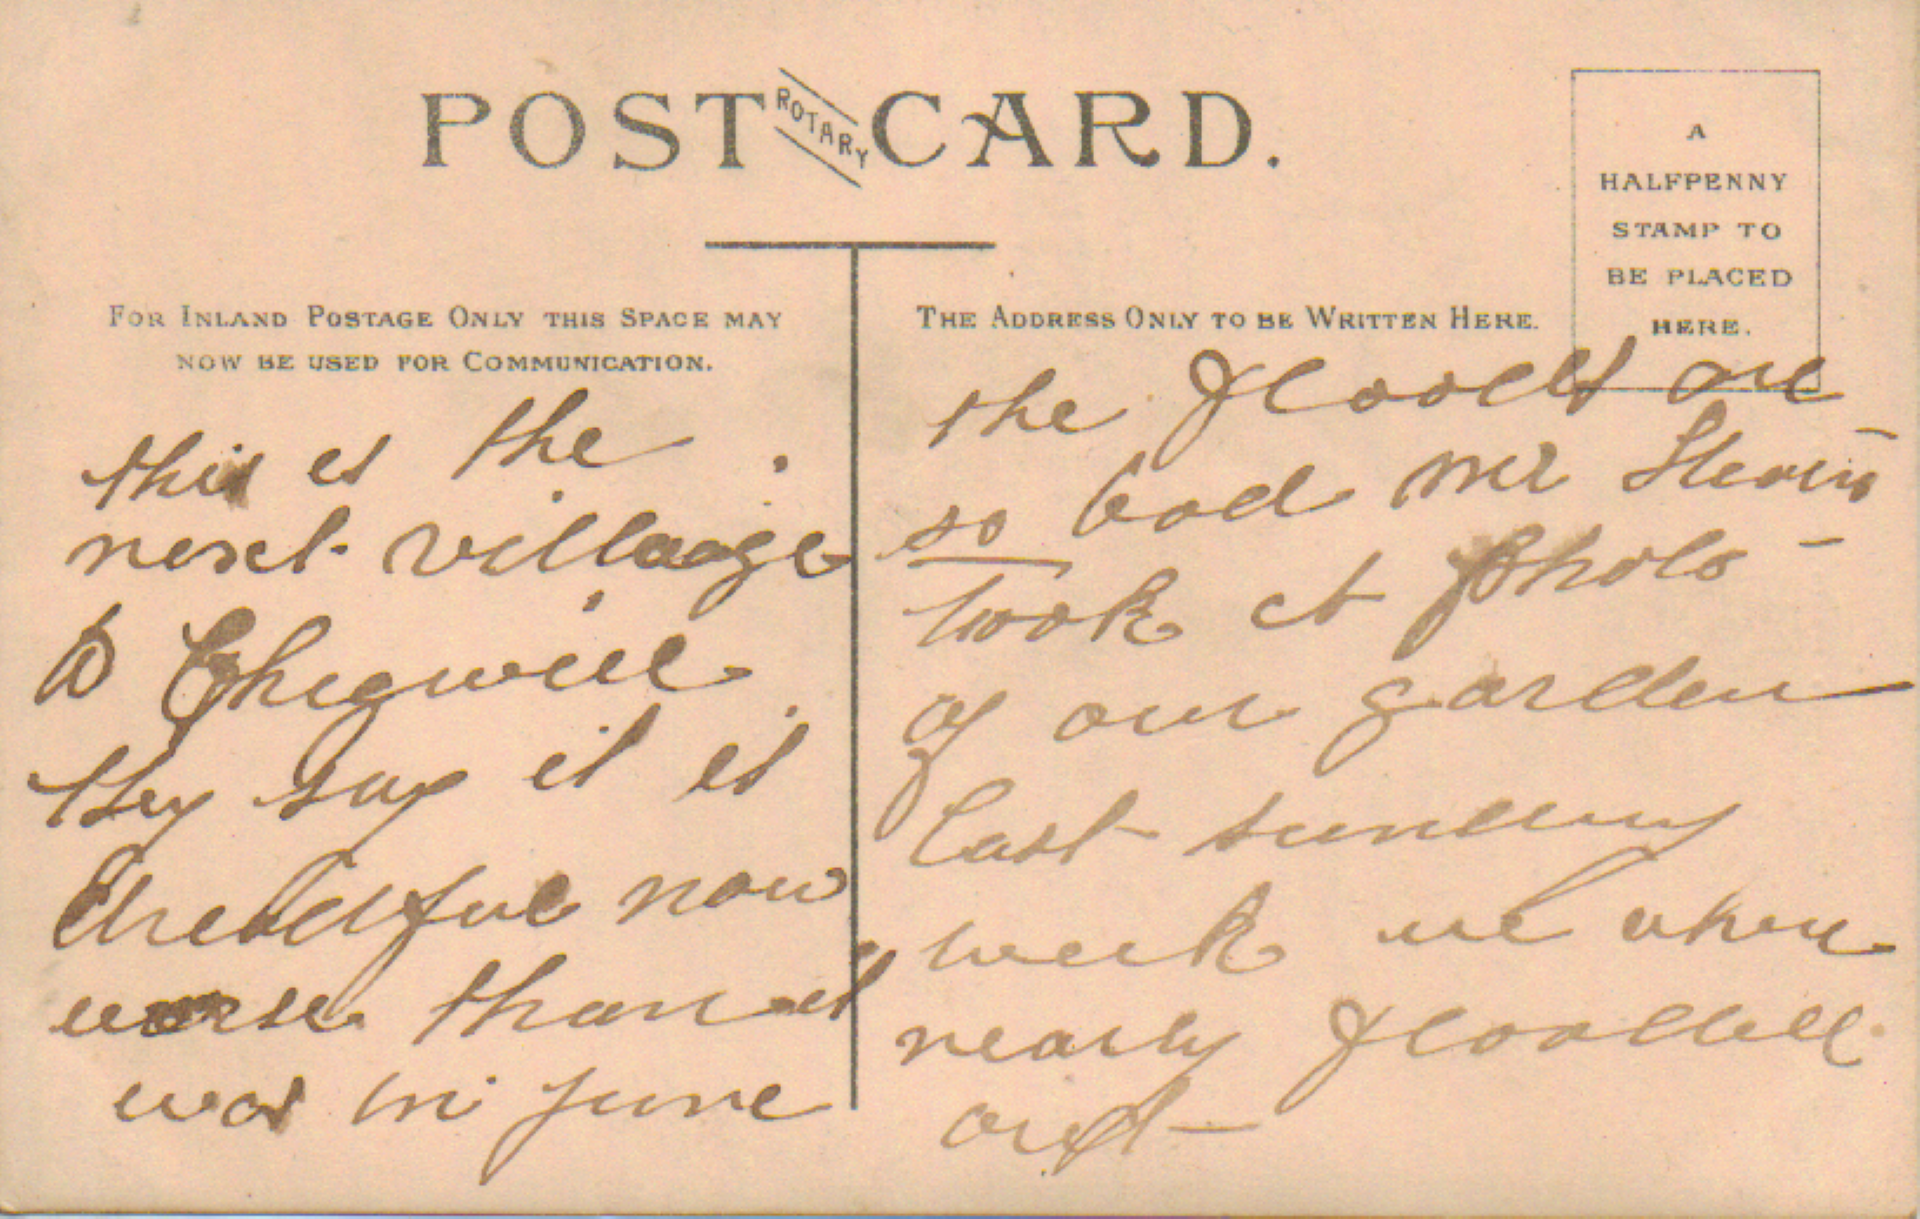 POST CARD.
ROTARY
A
HALFPENNY
STAMP TO
BE PLACED
HERE.
FOR INLAND POSTAGE ONLY THIS SPACE MAY
NOW BE USED FOR COMMUNICATION.
THE ADDRESS ONLY TO BE WRITTEN HERE.
this is the
next village
to Chigwell
they say it is
dreadful now
worse than it
was in June
the floods are
so bad Mr
took a photo -
of our garden
last sunday
week we when
nearly flooded
out -